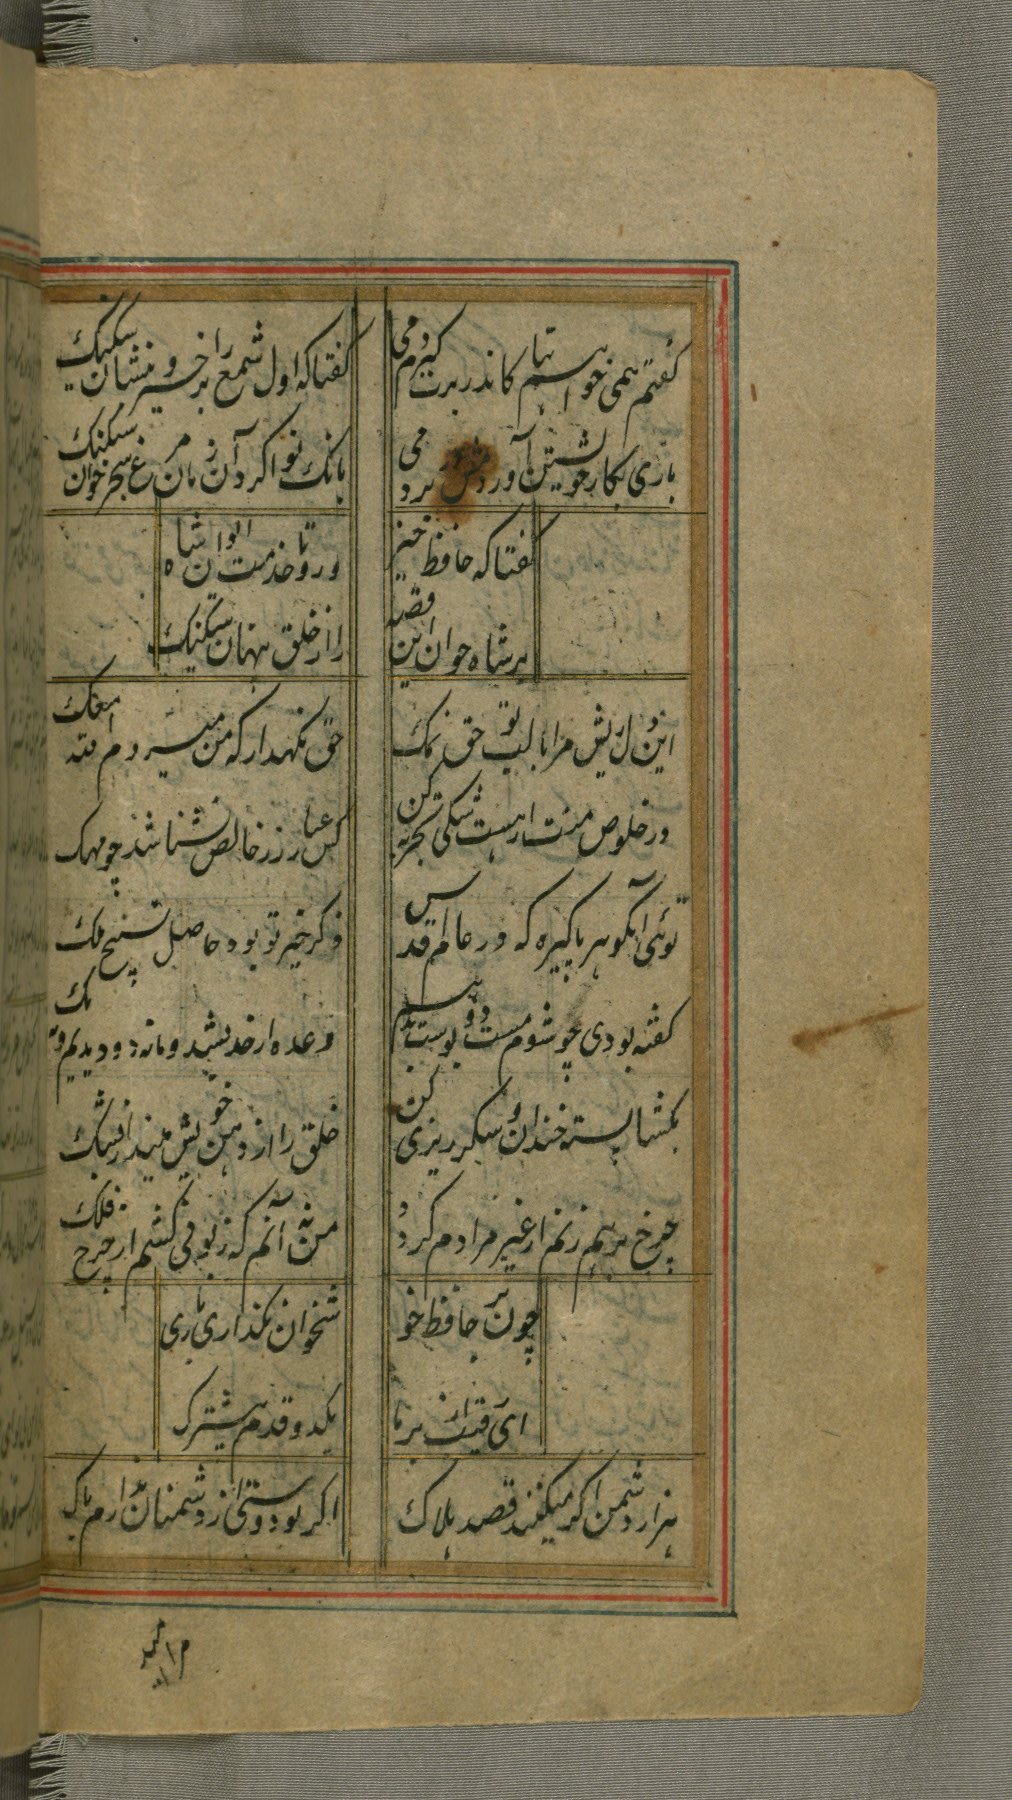 گفتم همی خواهم بتا کاندر برت گیرم دمی
گفتا که اول شمع را برخیز و بنشان سیکنیک
باری بکار خویشتن آورد می برد
بانک نو اکر آن زمان مرغ سحرخوان سیکنک
گفتا که حافظ خیز
ورو تا خدمت الوان شاه
بر شاه جوان این قصه
را از خلق پنهان سیکنیک
ای دل ریش مرا با لب تو حق نمک
حق نکهدار که من میروم الله معک
در خلوص منت ار هست شکی تجربه کن
کس عیار زر خالص نشناسد چو مهک
توئی آنکو هر پاکیزه که در عالم قدس
ذکر خیر تو بود حاصل تسبیح ملک
کفته بودی چو شوم مست دو بوست بدهم
وعده از حد بشد و ما نه دو دیدیم و نه یک
بکشا پسته خندان و شکر ریزی کن
خلق را از دهن خویش مینداز بشک
چرخ برهم زنم ار غیر مرادم کردد
من نه آنم که زبونی کشم از چرخ فلک
چون بر حافظ خو
یشتن نکذاری باری
ای رقیب از بر ما
یکدو قدم پیشترک
هزار دشمن اکر میکنند قصد هلاک
اکر تو دوستی از دشمنان ندارم باک